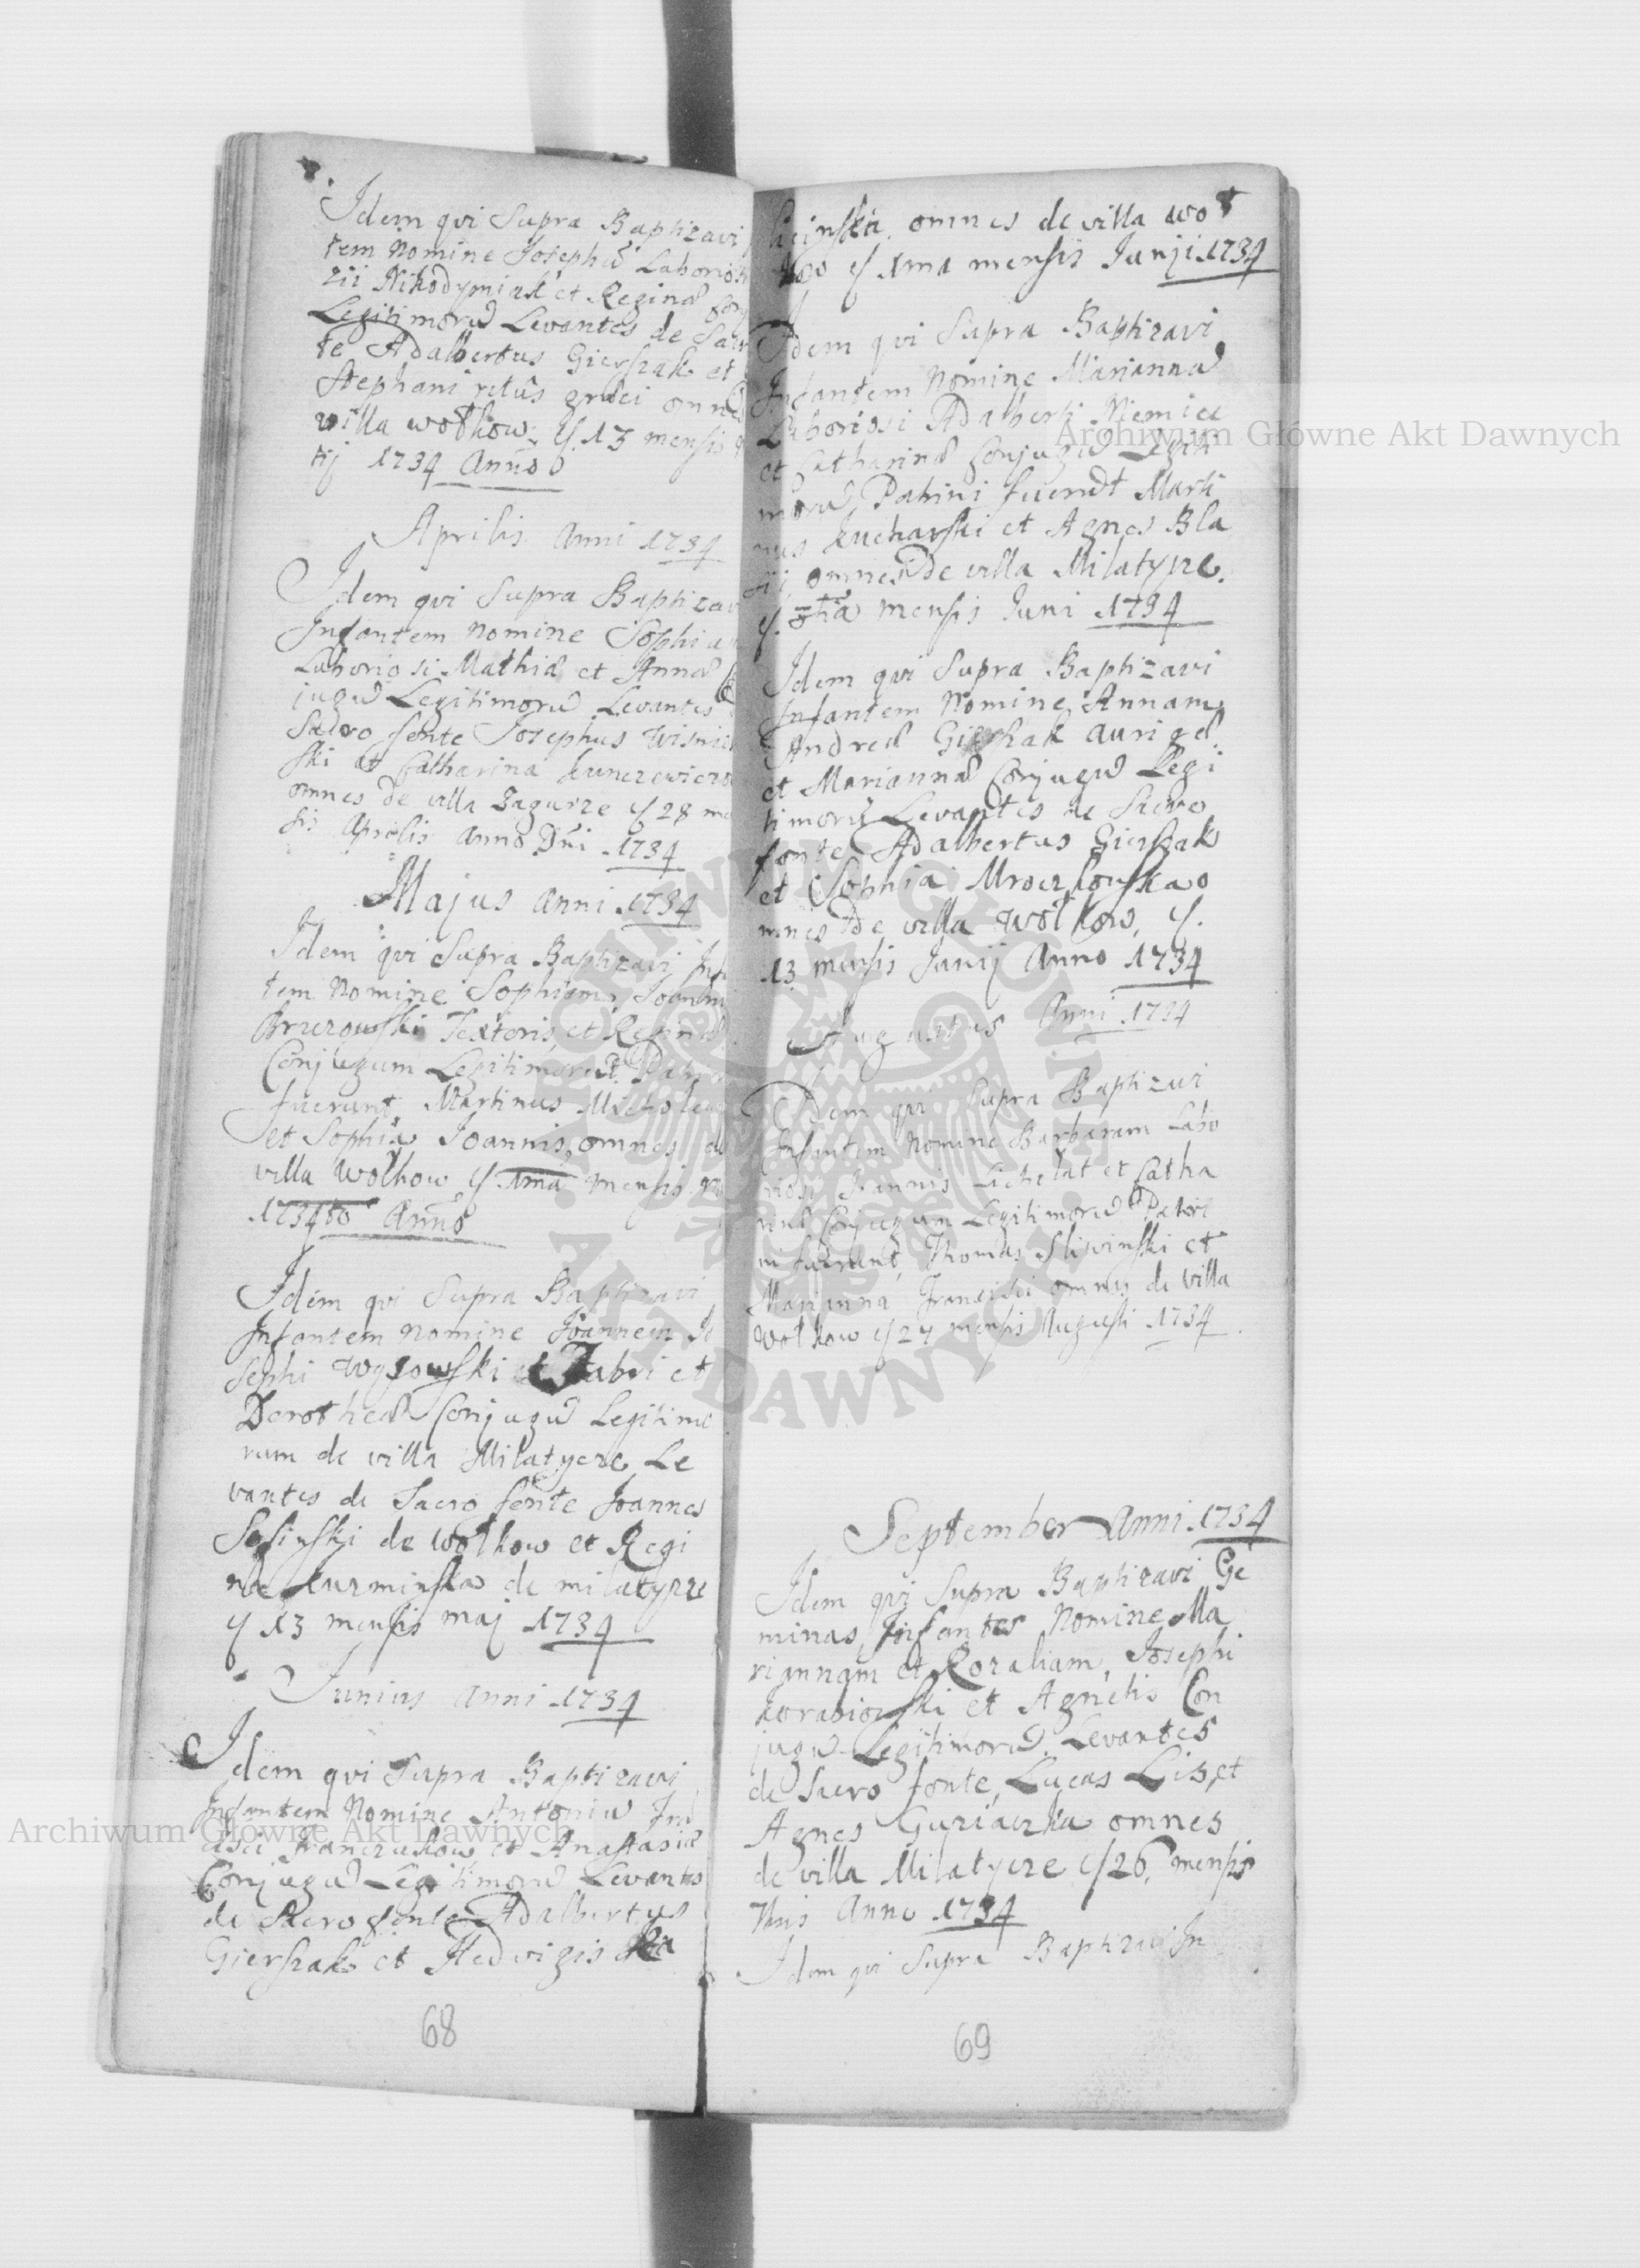 Idem qvi Supra Baptizavi
tem Nomine Josephū Laborios
zii Nikodymiak et Reginæ Con
Legitimorū Levantes de Sacr
te Adalbertus Gierszak et
Stephani ritûs græci omnes
villa wołkow. ȷ 13 mensis
tij 1734 Anno
Aprilis Anni 1734
Idem qvi Supra Baptizav
Infantem Nomine Sophia
Laboriosi Mathiæ et Annæ
jugū Legitimorū Levantes
Sacro fonte Josephus Wisnie
ski et Catharina
omnes de villa Zagurze ȷ 28 me
sis Aprilis Anno Dni 1734
Majus Anni 1734
Idem qvi Supra Baptizavi Inf
tem Nomine Sophiam, Joanni
Textoris, et Reginæ
Conjugum Legitimorū Patri
fuerunt, Martinus
et Sophia Joannis, omnes de
villa Wołkow ȷ 1ma mensis
1734to Anno
Idem qvi Supra Baptizavi
Infantem Nomine Joannem Jo
sephi Wysowski Fabri et
Dorotheæ Conjugū Legitimo
rum de villa Milatycze Le
vantes de Sacro fonte Joannes
Sosinski de Wołkow et Regi
na Kurminska de milatycze
ȷ 13 mensis maj 1734
Junius Anni 1734
Idem qvi Supra Baptizavi
Infantem Nomine Antoniū Fra
cisci Franczukow et Anastasiæ
Conjugū Legitimorū Levantes
de Sacro fonte Adalbertus
Gierszak et Hedvigis
68
omnes de villa Woł
kow ȷ 1ma mensis Junji 1734
Idem qvi Supra Baptizavi
Infantem Nomine Mariannā
Laboriosi Adalberti Niemiec
et Catharinæ Conjugū Legiti
morū, Patrini fuerūt Marti
nus Kucharski et Agnes Bla
sij omnes de villa Milatycze.
ȷ. mensis Juni 1734
Idem qvi Supra Baptizavi
Infantem Nomine Annam
Andreæ Gierszak Aurigæ
et Mariannæ Conjugū Legi
timorū Levantes de Sacro
fonte Adalbertus Gierszak
et Sophia Mroczkowska o
mnes de villa Wołkow, ȷ.
13 mensis Junij Anno 1734
Augustus Anni 1734
Idem qvi Supra Baptizavi
Infantem Nomine Barbaram Labo
riosi Joannis et Catha
rinæ Conjugum Legitimorū Patri
ni fuerunt, Thomas Sliwinski et
Marianna Francisci omnes de villa
Wołkow ȷ 27 mensis Augusti 1734
September Anni 1734
Idem qvi Supra Baptizavi Ge
minas, Infantes Nomine Ma
riannam et Rozaliam, Josephi
et Agnetis Con
jugū Legitimorū Levantes
de Sacro fonte, Lucas Lis, et
Agnes Guriaczka omnes
de villa Milatycze ȷ 26, mensis
7bris Anno 1734
Idem qvi Supra Baptizavi In
69
Archiwum Główne Akt Dawnych
Archiwum Główne Akt Dawnych
ARCHIWUM GŁÓWNE AKT DAWNYCH